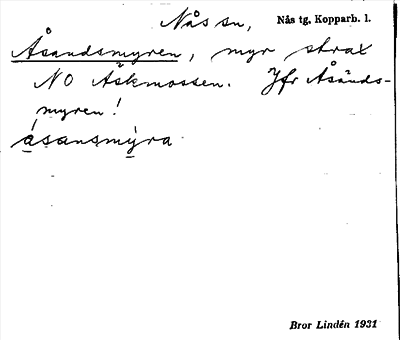 Nås sn, Nås tg, Kopparb. l.
Åsandsmyren, myr strax
NO Åskmossen. Jfr Åsands-
myren!
ásansmỳra
Bror Lindén 1931